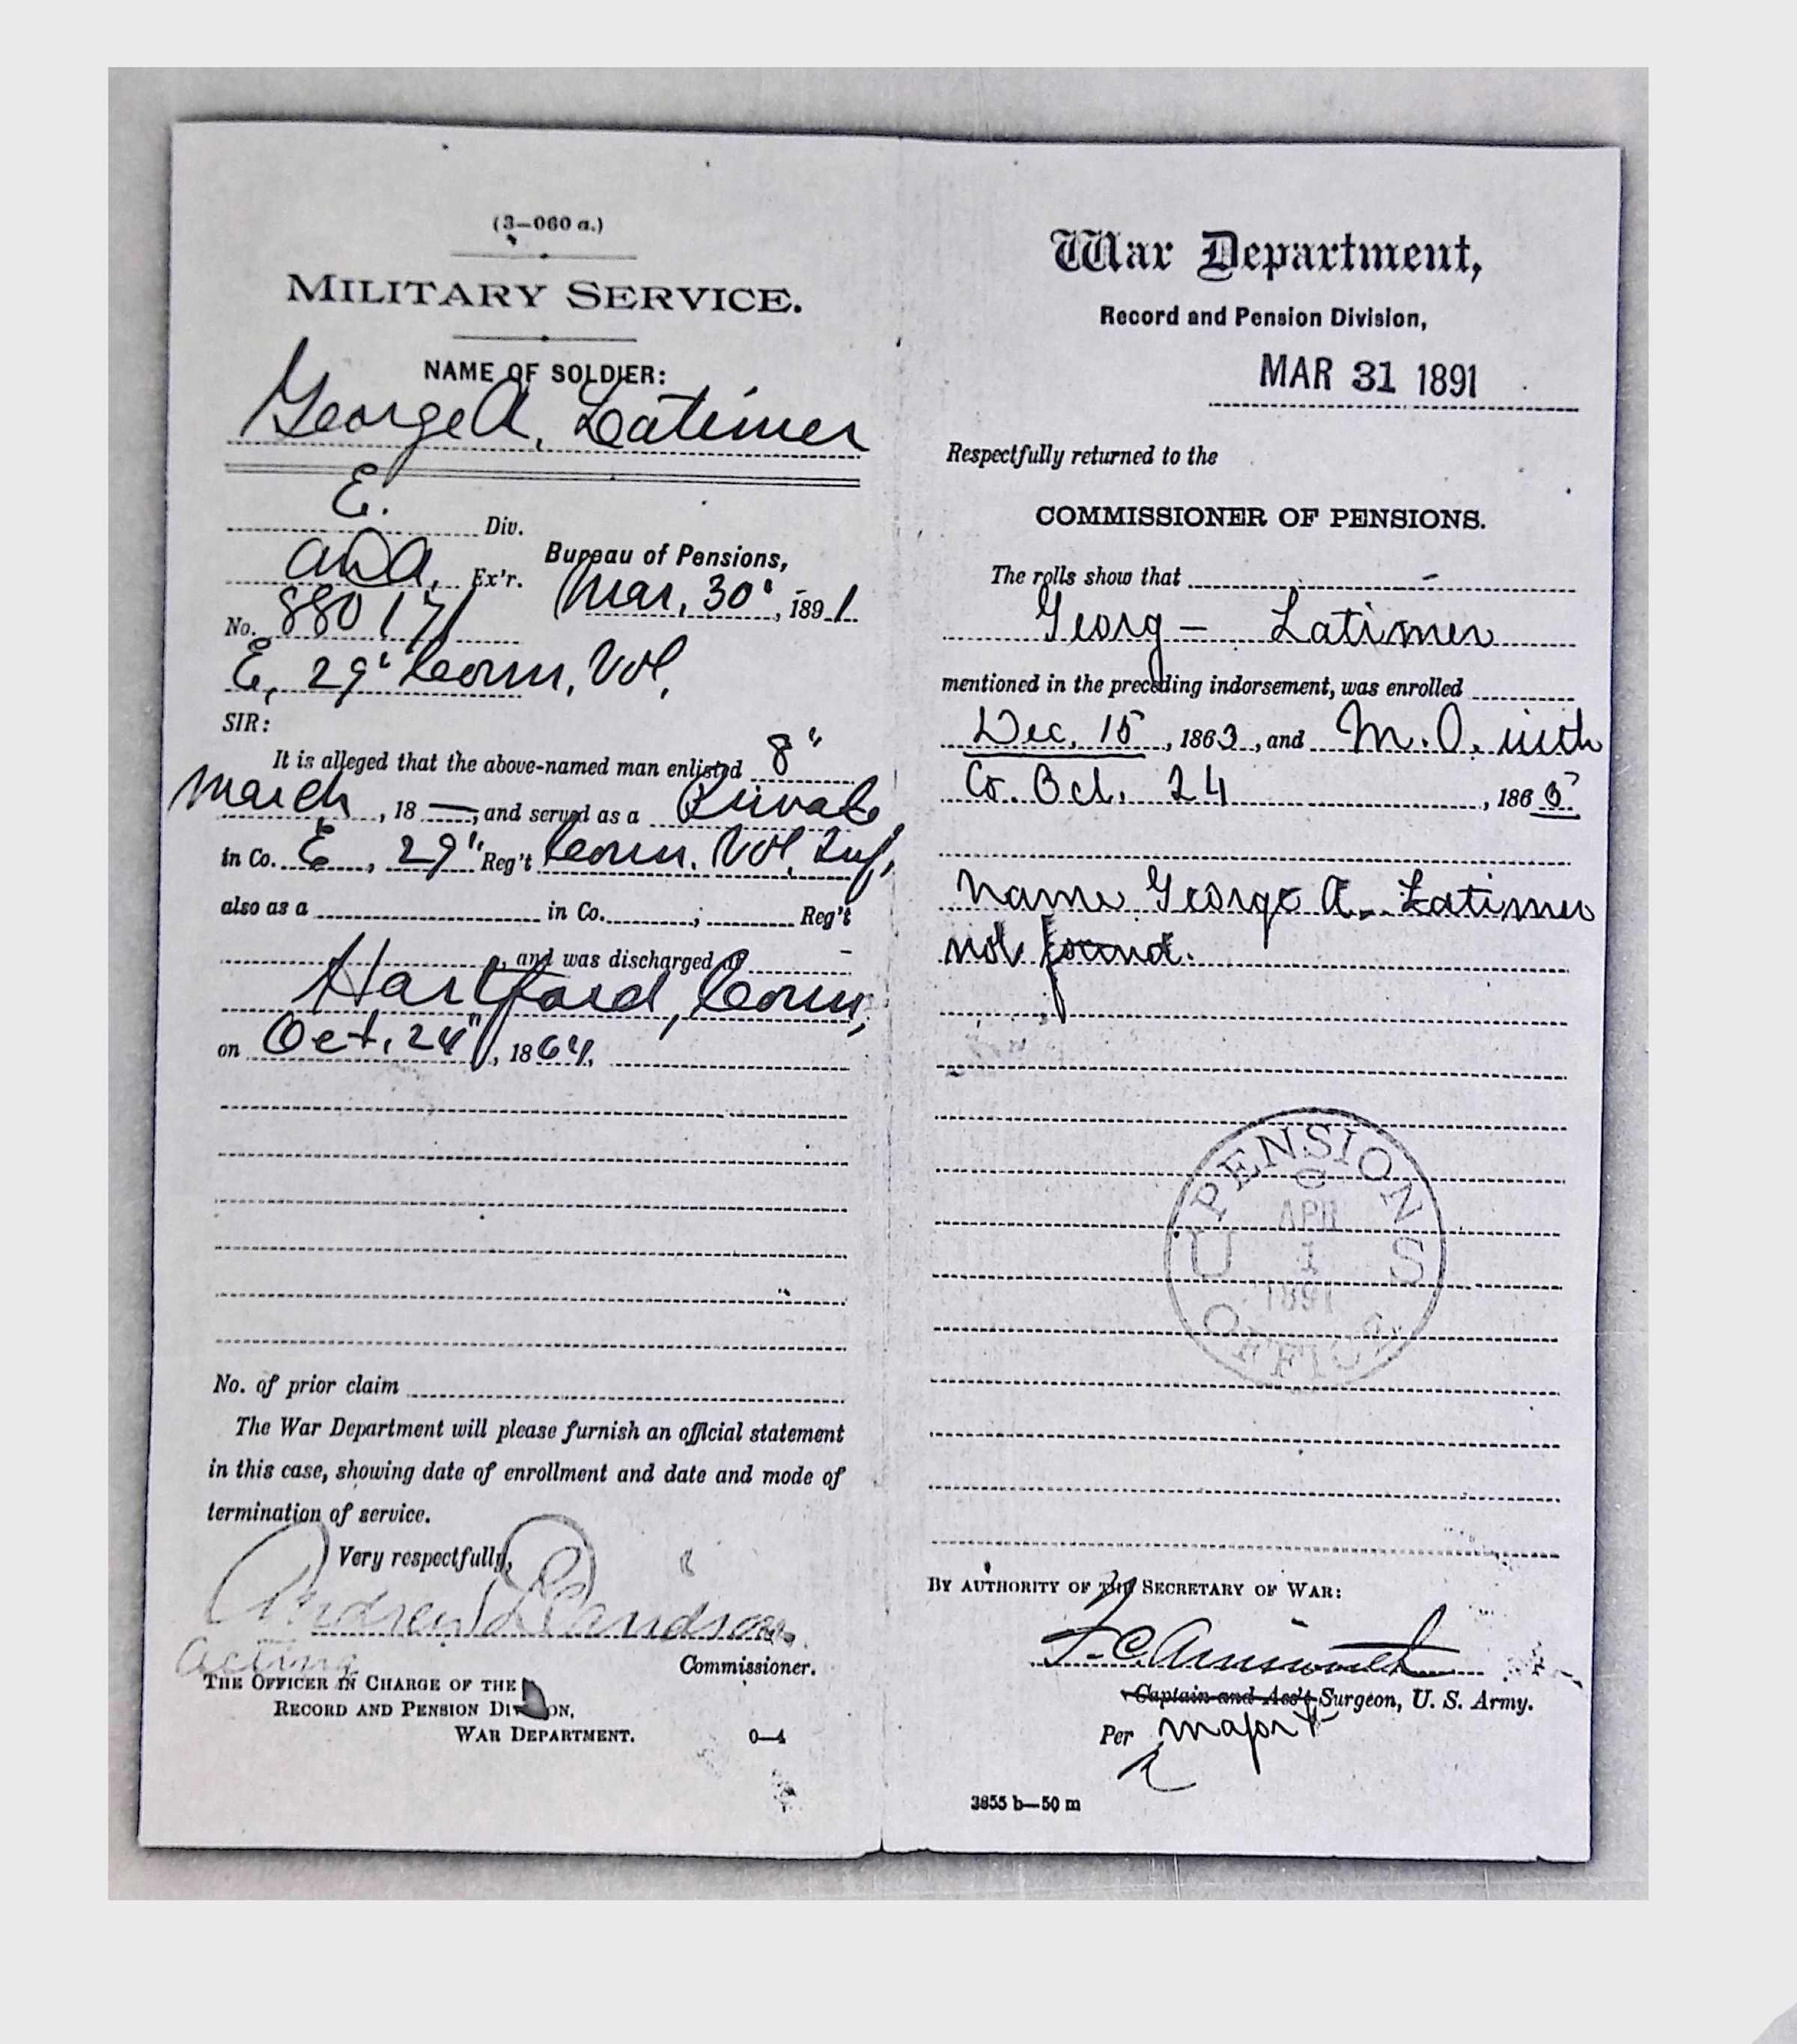 (3—060 a.)
MILITARY SERVICE.
NAME OF SOLDIER:
George A. Latimer
E. Div.
Bureau of Pensions,
aWa, Ex'r.
Mar, 30", 1891.
No. 880171
E, 29" Conn, Vol,
SIR:
It is alleged that the above-named man enlisted 8"
March, 18 —; and served as a Private
in Co. E, 29" Reg't Conn. Vol, Inf,
also as a in Co. ; Reg't
, and was discharged at
Hartford, Conn,
on Oct. 24", 1864,
No. of prior claim
The War Department will please furnish an official statement
in this case, showing date of enrollment and date and mode of
termination of service.
Very respectfully,
Andrew Davidson
Acting Commissioner.
THE OFFICER IN CHARGE OF THE
RECORD AND PENSION DIVISION,
WAR DEPARTMENT.
0—4
War Department,
Record and Pension Division,
MAR 31 1891
Respectfully returned to the
COMMISSIONER OF PENSIONS.
The rolls show that
Georg — Latimer
mentioned in the preceding indorsement, was enrolled
Dec. 15, 1863, and M. O. with
Co. Oct. 24, 1865
Name George A. Latimer
not found.
PENSION
C
APR
U 1 S
1891
OFFICE
BY AUTHORITY OF THE SECRETARY OF WAR:
F. C. Ainsworth
Captain and Ass't Surgeon, U. S. Army.
Per Major
3855 b—50 m